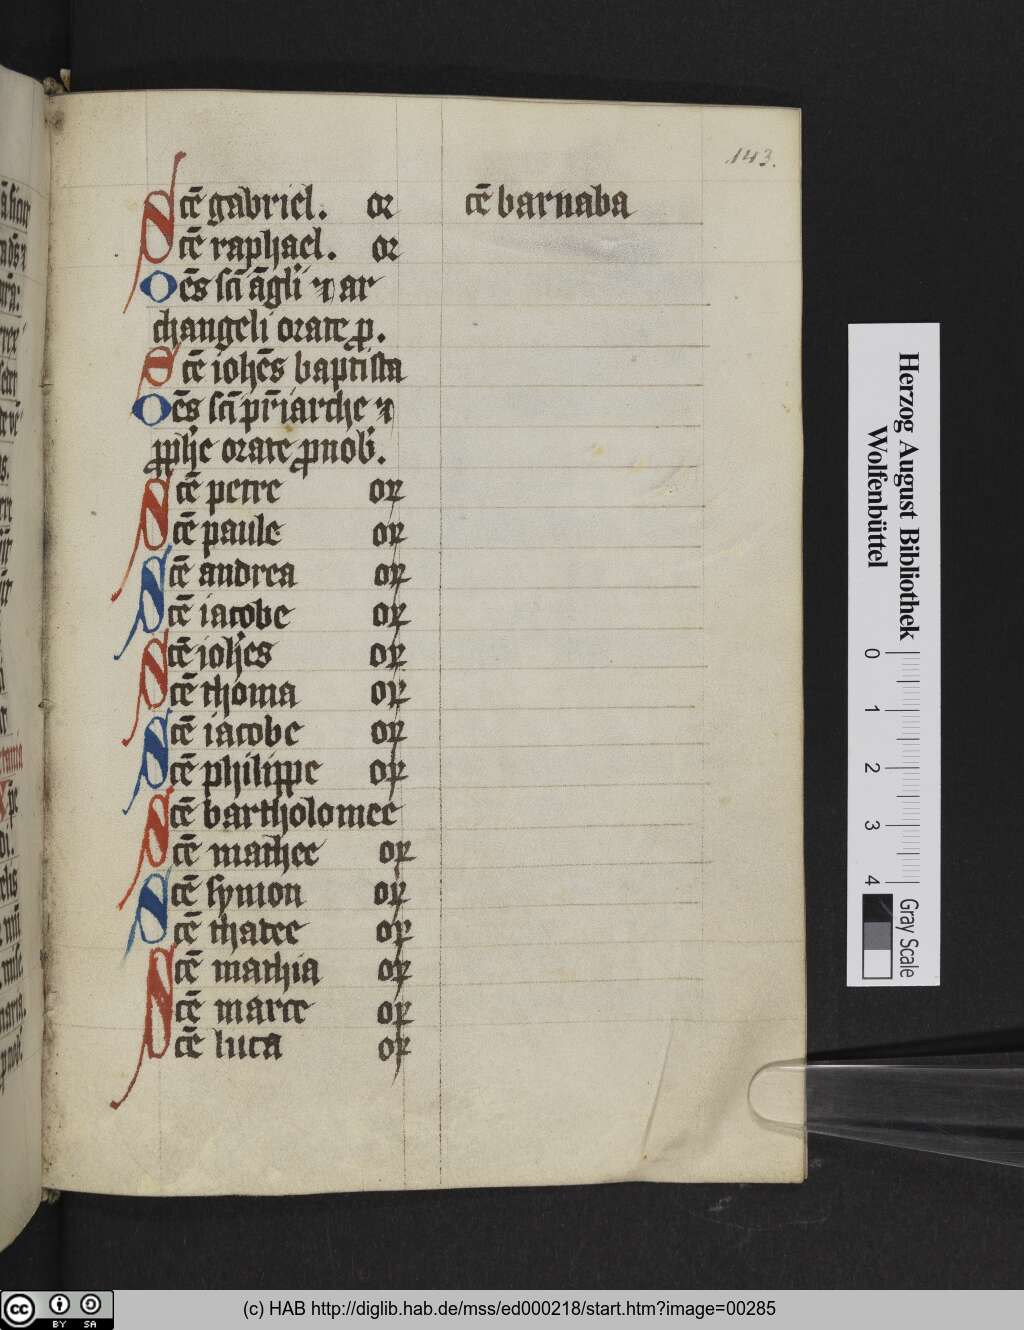 143.
Scē gabriel. or
cē barnaba
cē raphael. or
Oēs sci āgli ⁊ ar
changeli orate ꝓ.
Scē iohēs baptista
Oēs sci pr̄iarche ⁊
ꝓphe orate ꝓ nob̄.
Scē petre or
cē paule or
Scē andrea or
cē iacobe or
Scē ioh̄es or
cē thoma or
Scē iacobe or
cē philippe or
Scē bartholomee
cē mathee or
Scē symon or
cē thatee or
Scē mathia or
cē marce or
cē luca or
Herzog August Bibliothek
Wolfenbüttel
0 1 2 3 4
Gray Scale
cc BY SA
(c) HAB http://diglib.hab.de/mss/ed000218/start.htm?image=00285